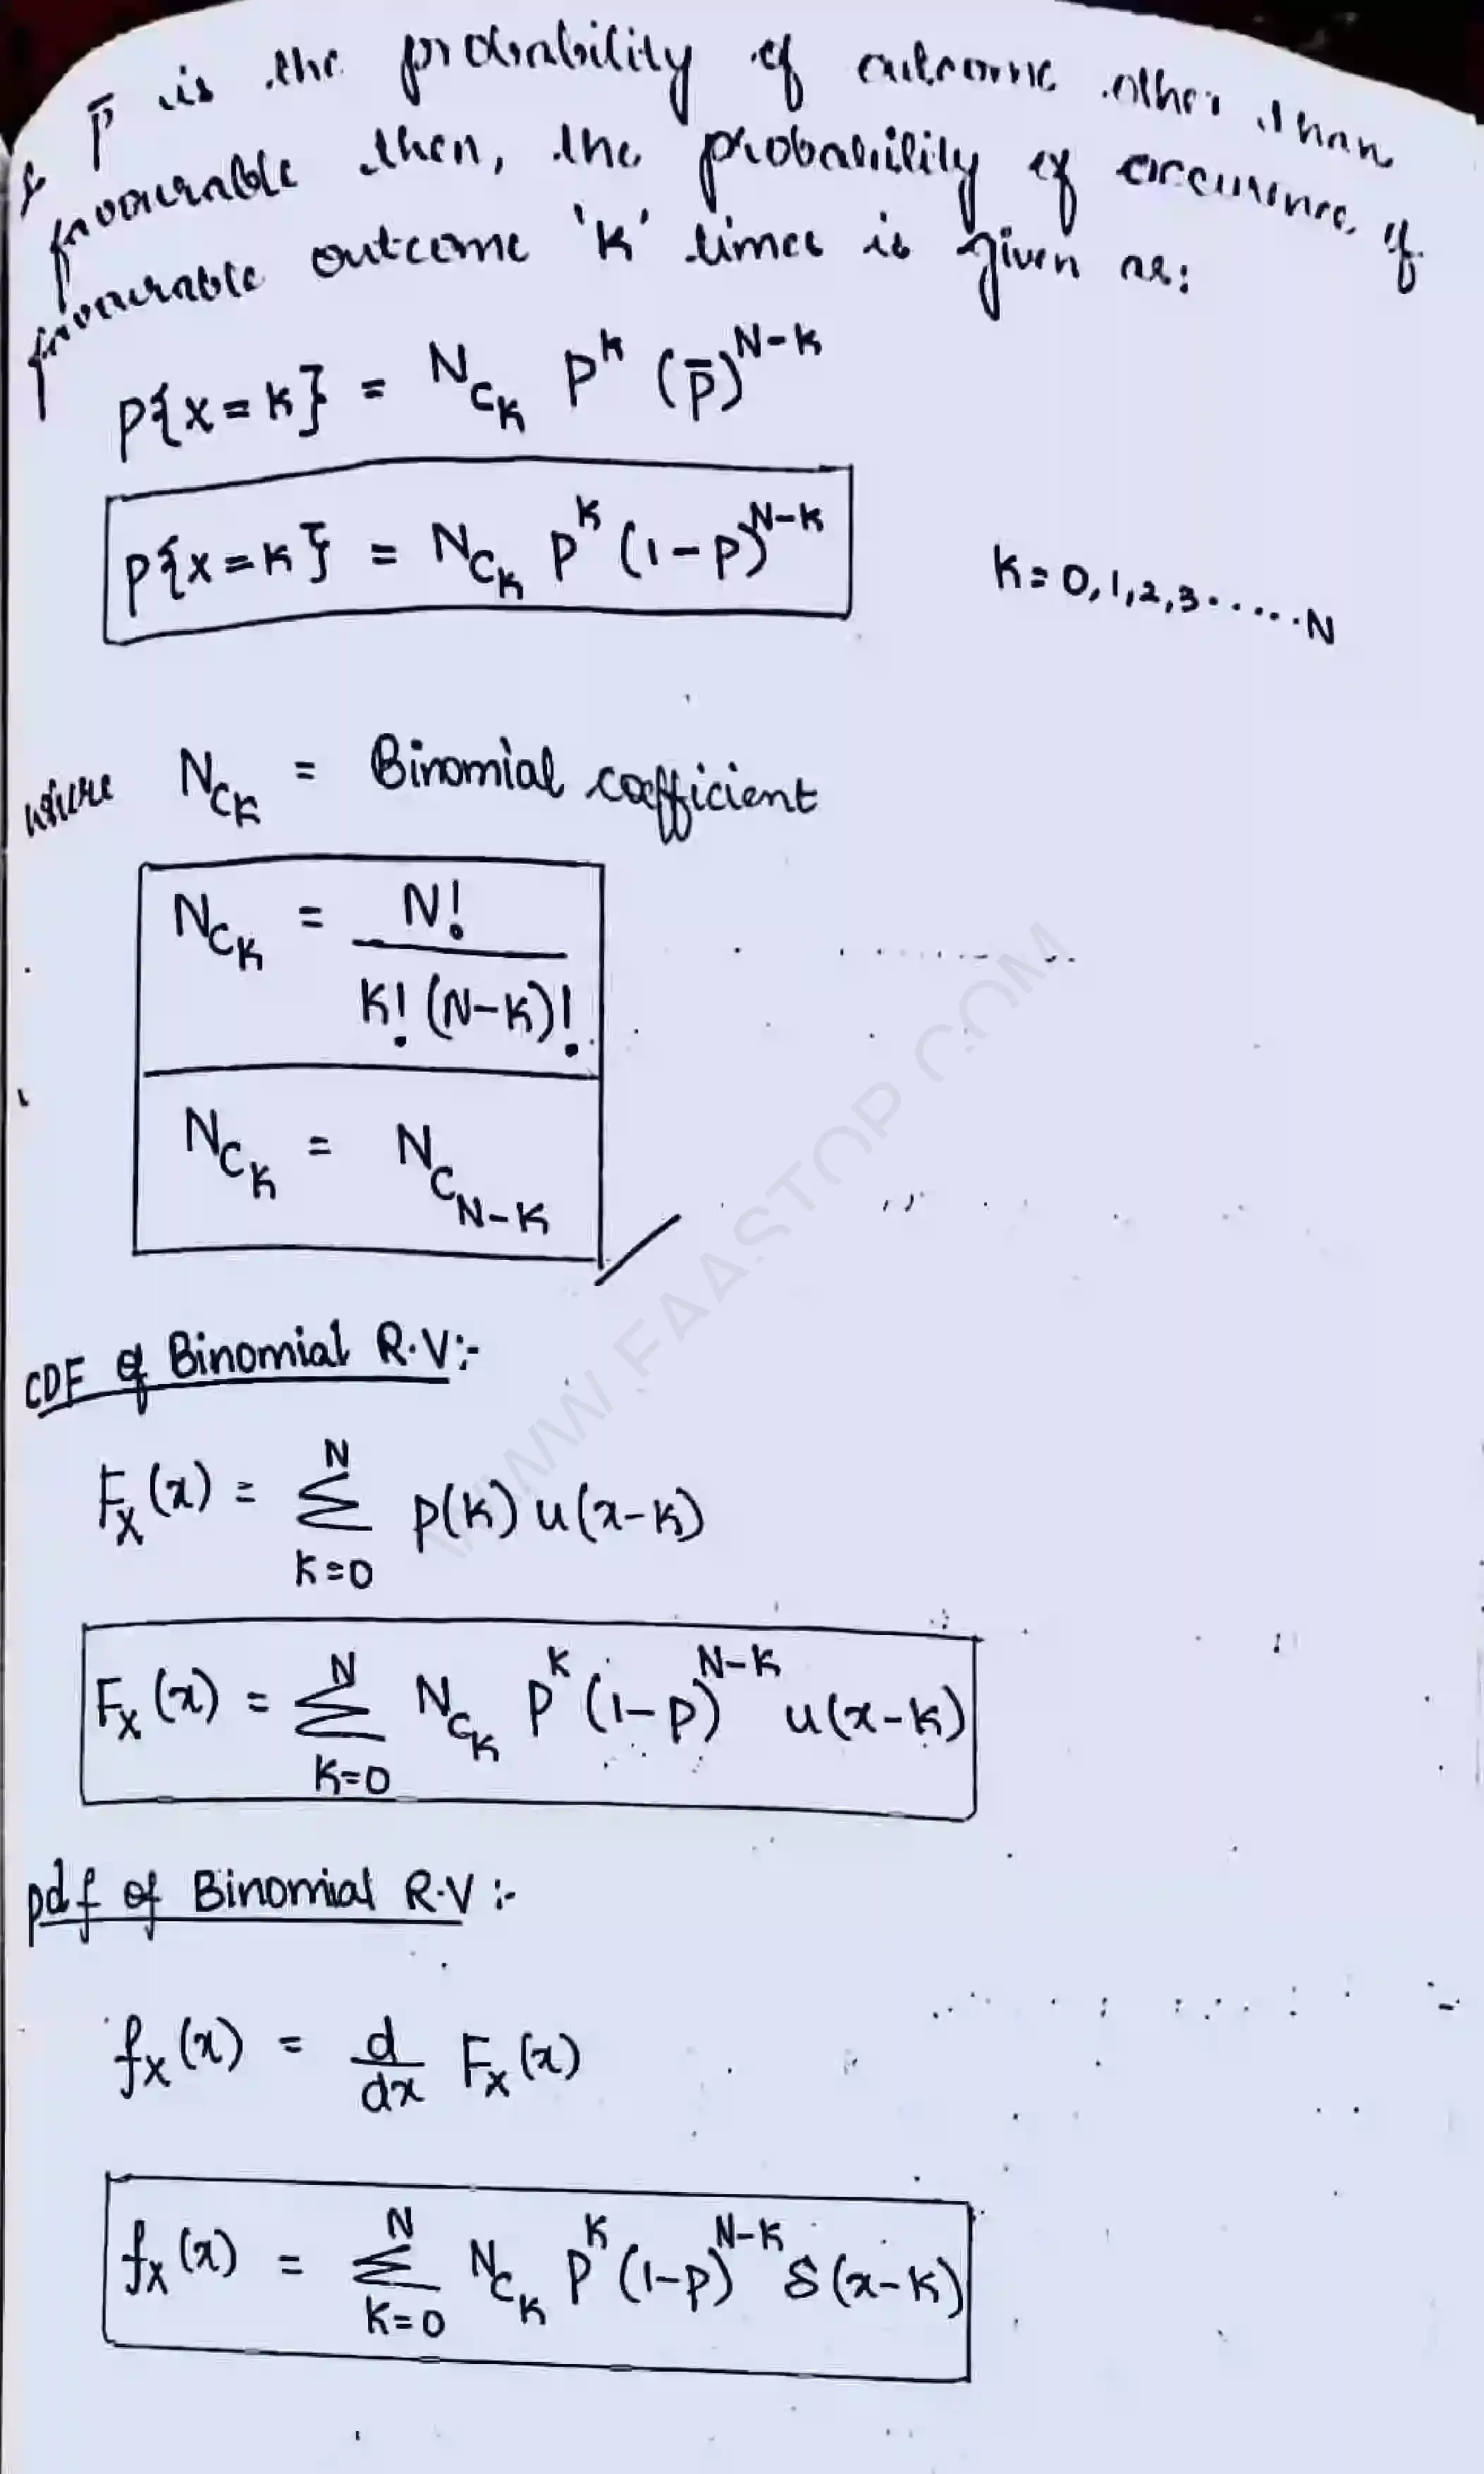 & p̄ is the probability of outcome other than
favourable then, the probability of occurence of
favourable outcome 'K' times is given as:
P{x=K} = N_C_K P^K (p̄)^N-K
P{x=K} = N_C_K P^K (1-P)^N-K K=0,1,2,3......N
where N_C_K = Binomial coefficient
N_C_K = N! / K! (N-K)!
N_C_K = N_C_N-K
CDF of Binomial R.V:-
F_X(x) = Σ_K=0^N P(K) u(x-K)
F_X(x) = Σ_K=0^N N_C_K P^K (1-P)^N-K u(x-K)
pdf of Binomial R.V:-
f_X(x) = d/dx F_X(x)
f_X(x) = Σ_K=0^N N_C_K P^K (1-P)^N-K δ(x-K)
WWW.FAASTOP.COM